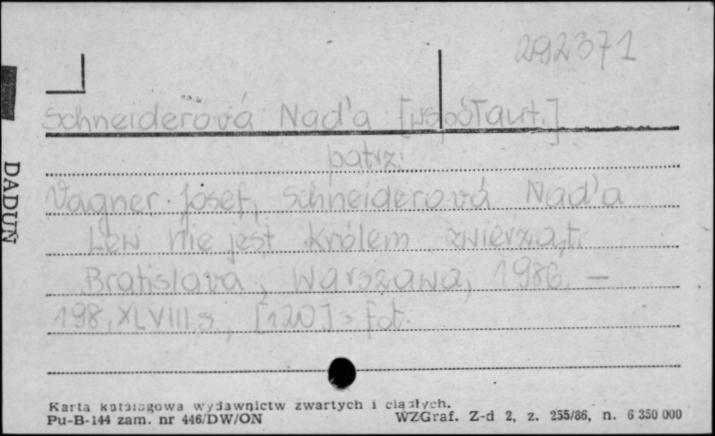 292371
Schneiderová Nad'a [współaut.]
patrz:
Vagner Josef, Schneiderová Nad'a
Lew nie jest królem zwierząt.
Bratislava, Warszawa, 1986. —
198, XLVIII s, [120] s fot.
DADUN
Karta katalogowa wydawnictw zwartych i ciągłych.
Pu-B-144 zam. nr 446/DW/ON
WZGraf. Z-d 2, z. 255/86, n. 6 350 000